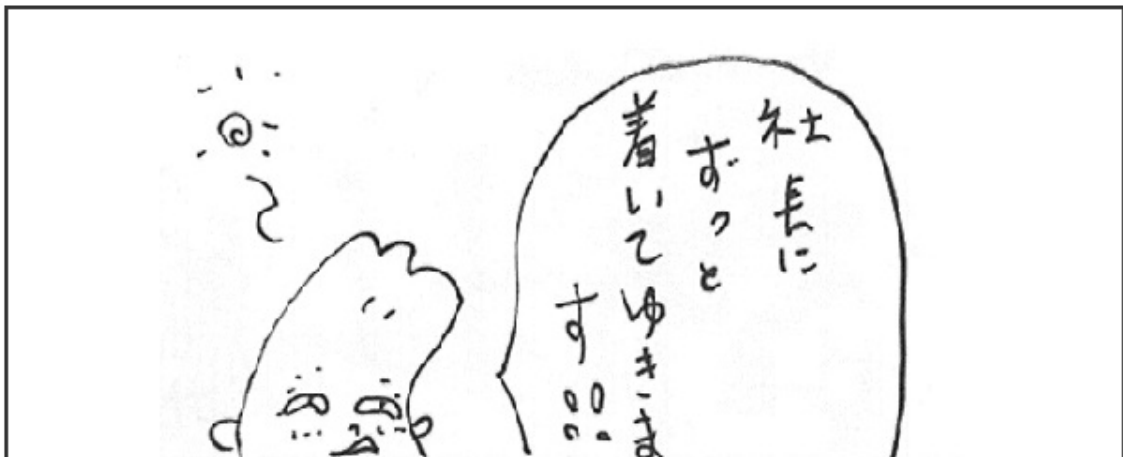 社長に
ずっと
着いてゆきま
す!!